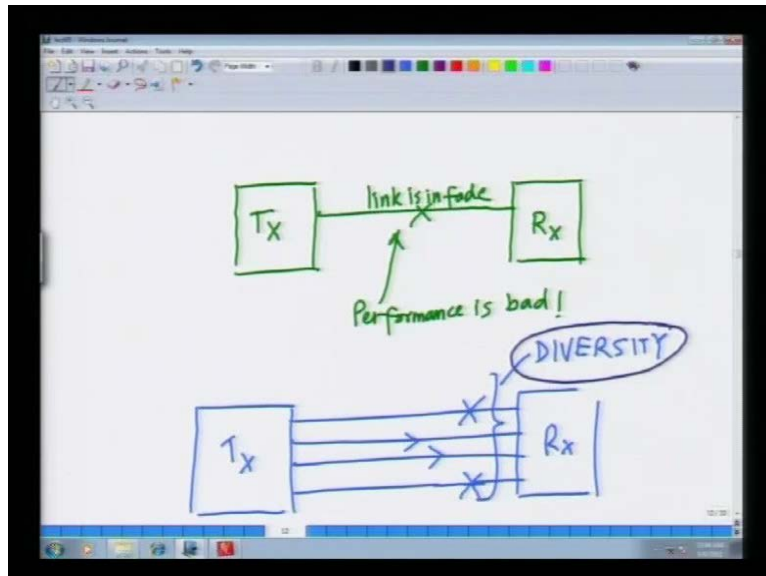 File Edit View Insert Actions Tools Help
Page Width
Tx
link is in fade
Rx
Performance is bad!
DIVERSITY
Tx
Rx
12